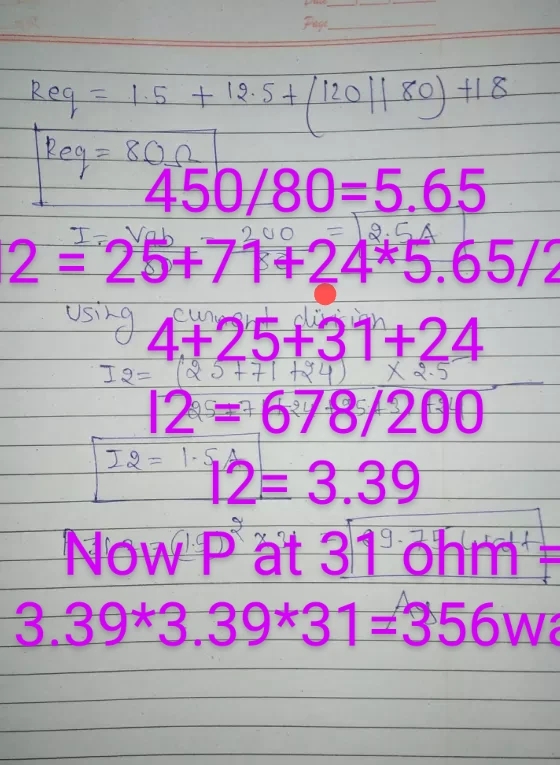 Date
Page
Req = 1.5 + 12.5 + (120 || 80) + 18
Req = 80Ω
450/80=5.65
I = Vab = 200 = 2.5A
I2 = 25+71+24*5.65/2
using current division
4+25+31+24
I2 = (25+71+24) × 2.5
25+71+24+25+31+24
I2 = 678/200
I2 = 1.5A
I2= 3.39
Now P at 31 ohm =
3.39*3.39*31=356wa